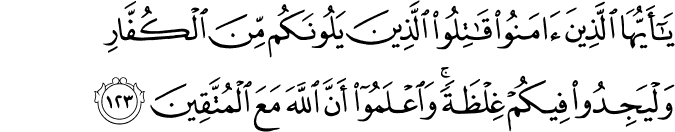 يَـٰٓأَيُّهَا ٱلَّذِينَ ءَامَنُوا۟ قَـٰتِلُوا۟ ٱلَّذِينَ يَلُونَكُم مِّنَ ٱلْكُفَّارِ
وَلْيَجِدُوا۟ فِيكُمْ غِلْظَةً ۚ وَٱعْلَمُوٓا۟ أَنَّ ٱللَّهَ مَعَ ٱلْمُتَّقِينَ ١٢٣